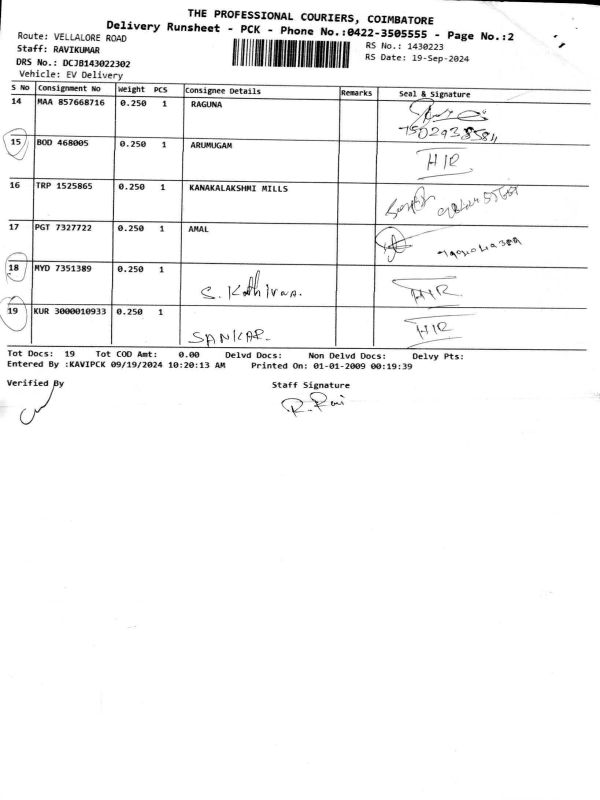 THE PROFESSIONAL COURIERS, COIMBATORE
Delivery Runsheet - PCK - Phone No.:0422-3505555 - Page No.:2
Route: VELLALORE ROAD
RS No.: 1430223
Staff: RAVIKUMAR
RS Date: 19-Sep-2024
DRS No.: DCJB143022302
Vehicle: EV Delivery
S No Consignment No Weight PCS Consignee Details Remarks Seal & Signature
14 MAA 857668716 0.250 1 RAGUNA
7502938584
15 BOD 468005 0.250 1 ARUMUGAM
H/R
16 TRP 1525865 0.250 1 KANAKALAKSHMI MILLS
17 PGT 7327722 0.250 1 AMAL
18 MYD 7351389 0.250 1
S. Kathirva. H/R
19 KUR 3000010933 0.250 1
SANKAR. H/R
Tot Docs: 19 Tot COD Amt: 0.00 Delvd Docs: Non Delvd Docs: Delvy Pts:
Entered By :KAVIPCK 09/19/2024 10:20:13 AM Printed On: 01-01-2009 00:19:39
Verified By Staff Signature
R. Ravi